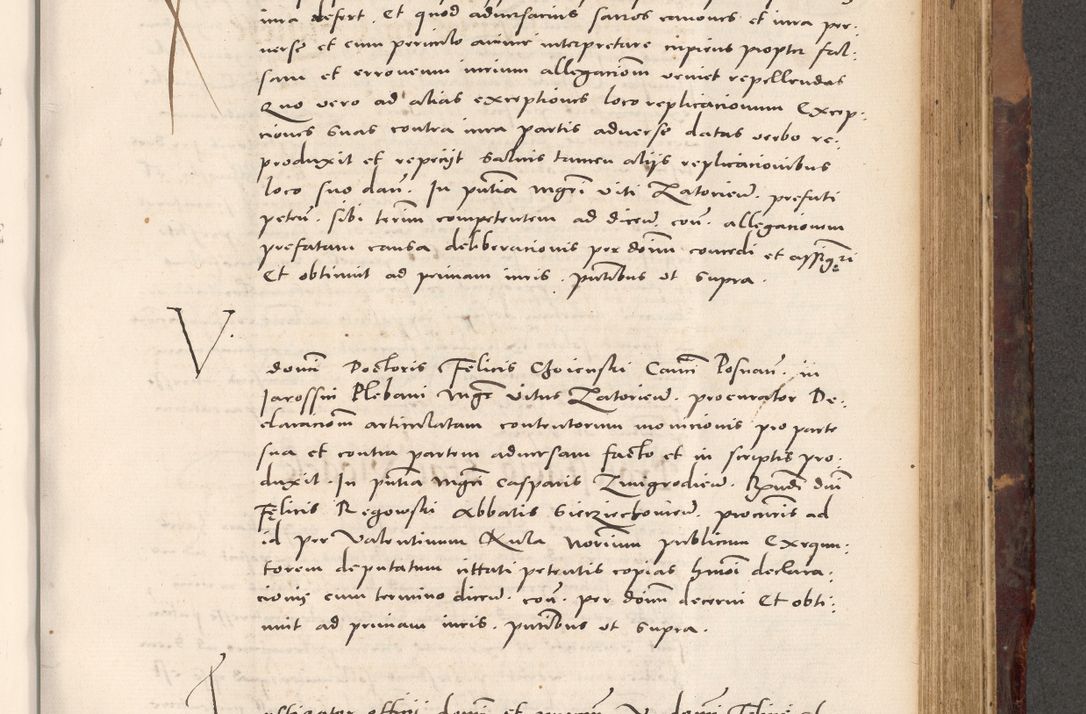 iura defert. Et quod adversarius sacros canones et iura per:
verse et cum periculo anime interpretare cupiens propter fal:
sam et erroneum iurium allegacioem veniet repellendus
Quo vero ad alias exceptiones loco replicacionum Excep:
ciones suas contra iura partis adverse datas verbo re:
produxit et repeciit salvis tamen aliis replicacionibus
loco suo dan. In pntia mgri viti Zatorien. prefati
peten. sibi terim competentem ad dicen con. allegacionem
prefatam causa deliberacionis per domi concedi et assigri
Et obtinuit ad primam iuris. pntibus ut supra.
V.
domi Doctoris Felicis Choienski Cani Posnan. in
Jarossin Plebani mgr vitus Zatorien. procurator De:
claracioem articulatam contentorum monicionis pro parte
sua et contra partem adversam facto et in scriptis pro:
duxit. In pntia mgri Casparis Zmigrodien. Rxndi dni
Felicis Regowski Abbatis Sierzechovien. procuris ad
id per Valentinum Kula notrium publicum Exequu:
torem deputatum cittati petentis copias hmoi declara:
cionis cum termino dicen. con. per domi decerni Et obti:
nuit ad primam iuris. pntibus ut supra.
Instigator officii domi et